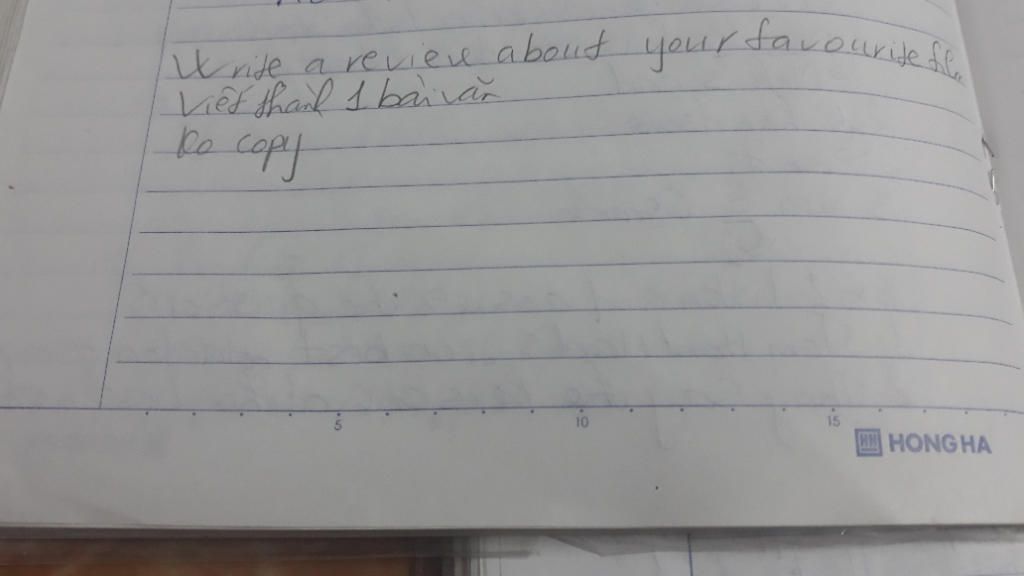 Write a review about your favourite
Viết thành 1 bài văn
Ko copy
5 10 15
HH HONG HA